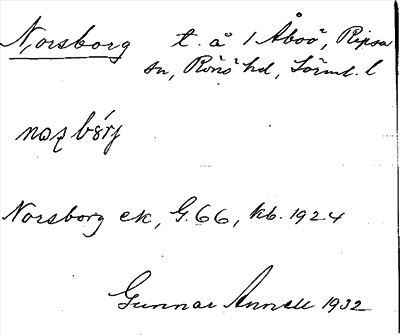 Norsborg t. å 1 Åboö, Ripsa
sn, Rönö hd, Södml. l
Norsborg ek, G.66, kb. 1924
Gunnar Annell 1932